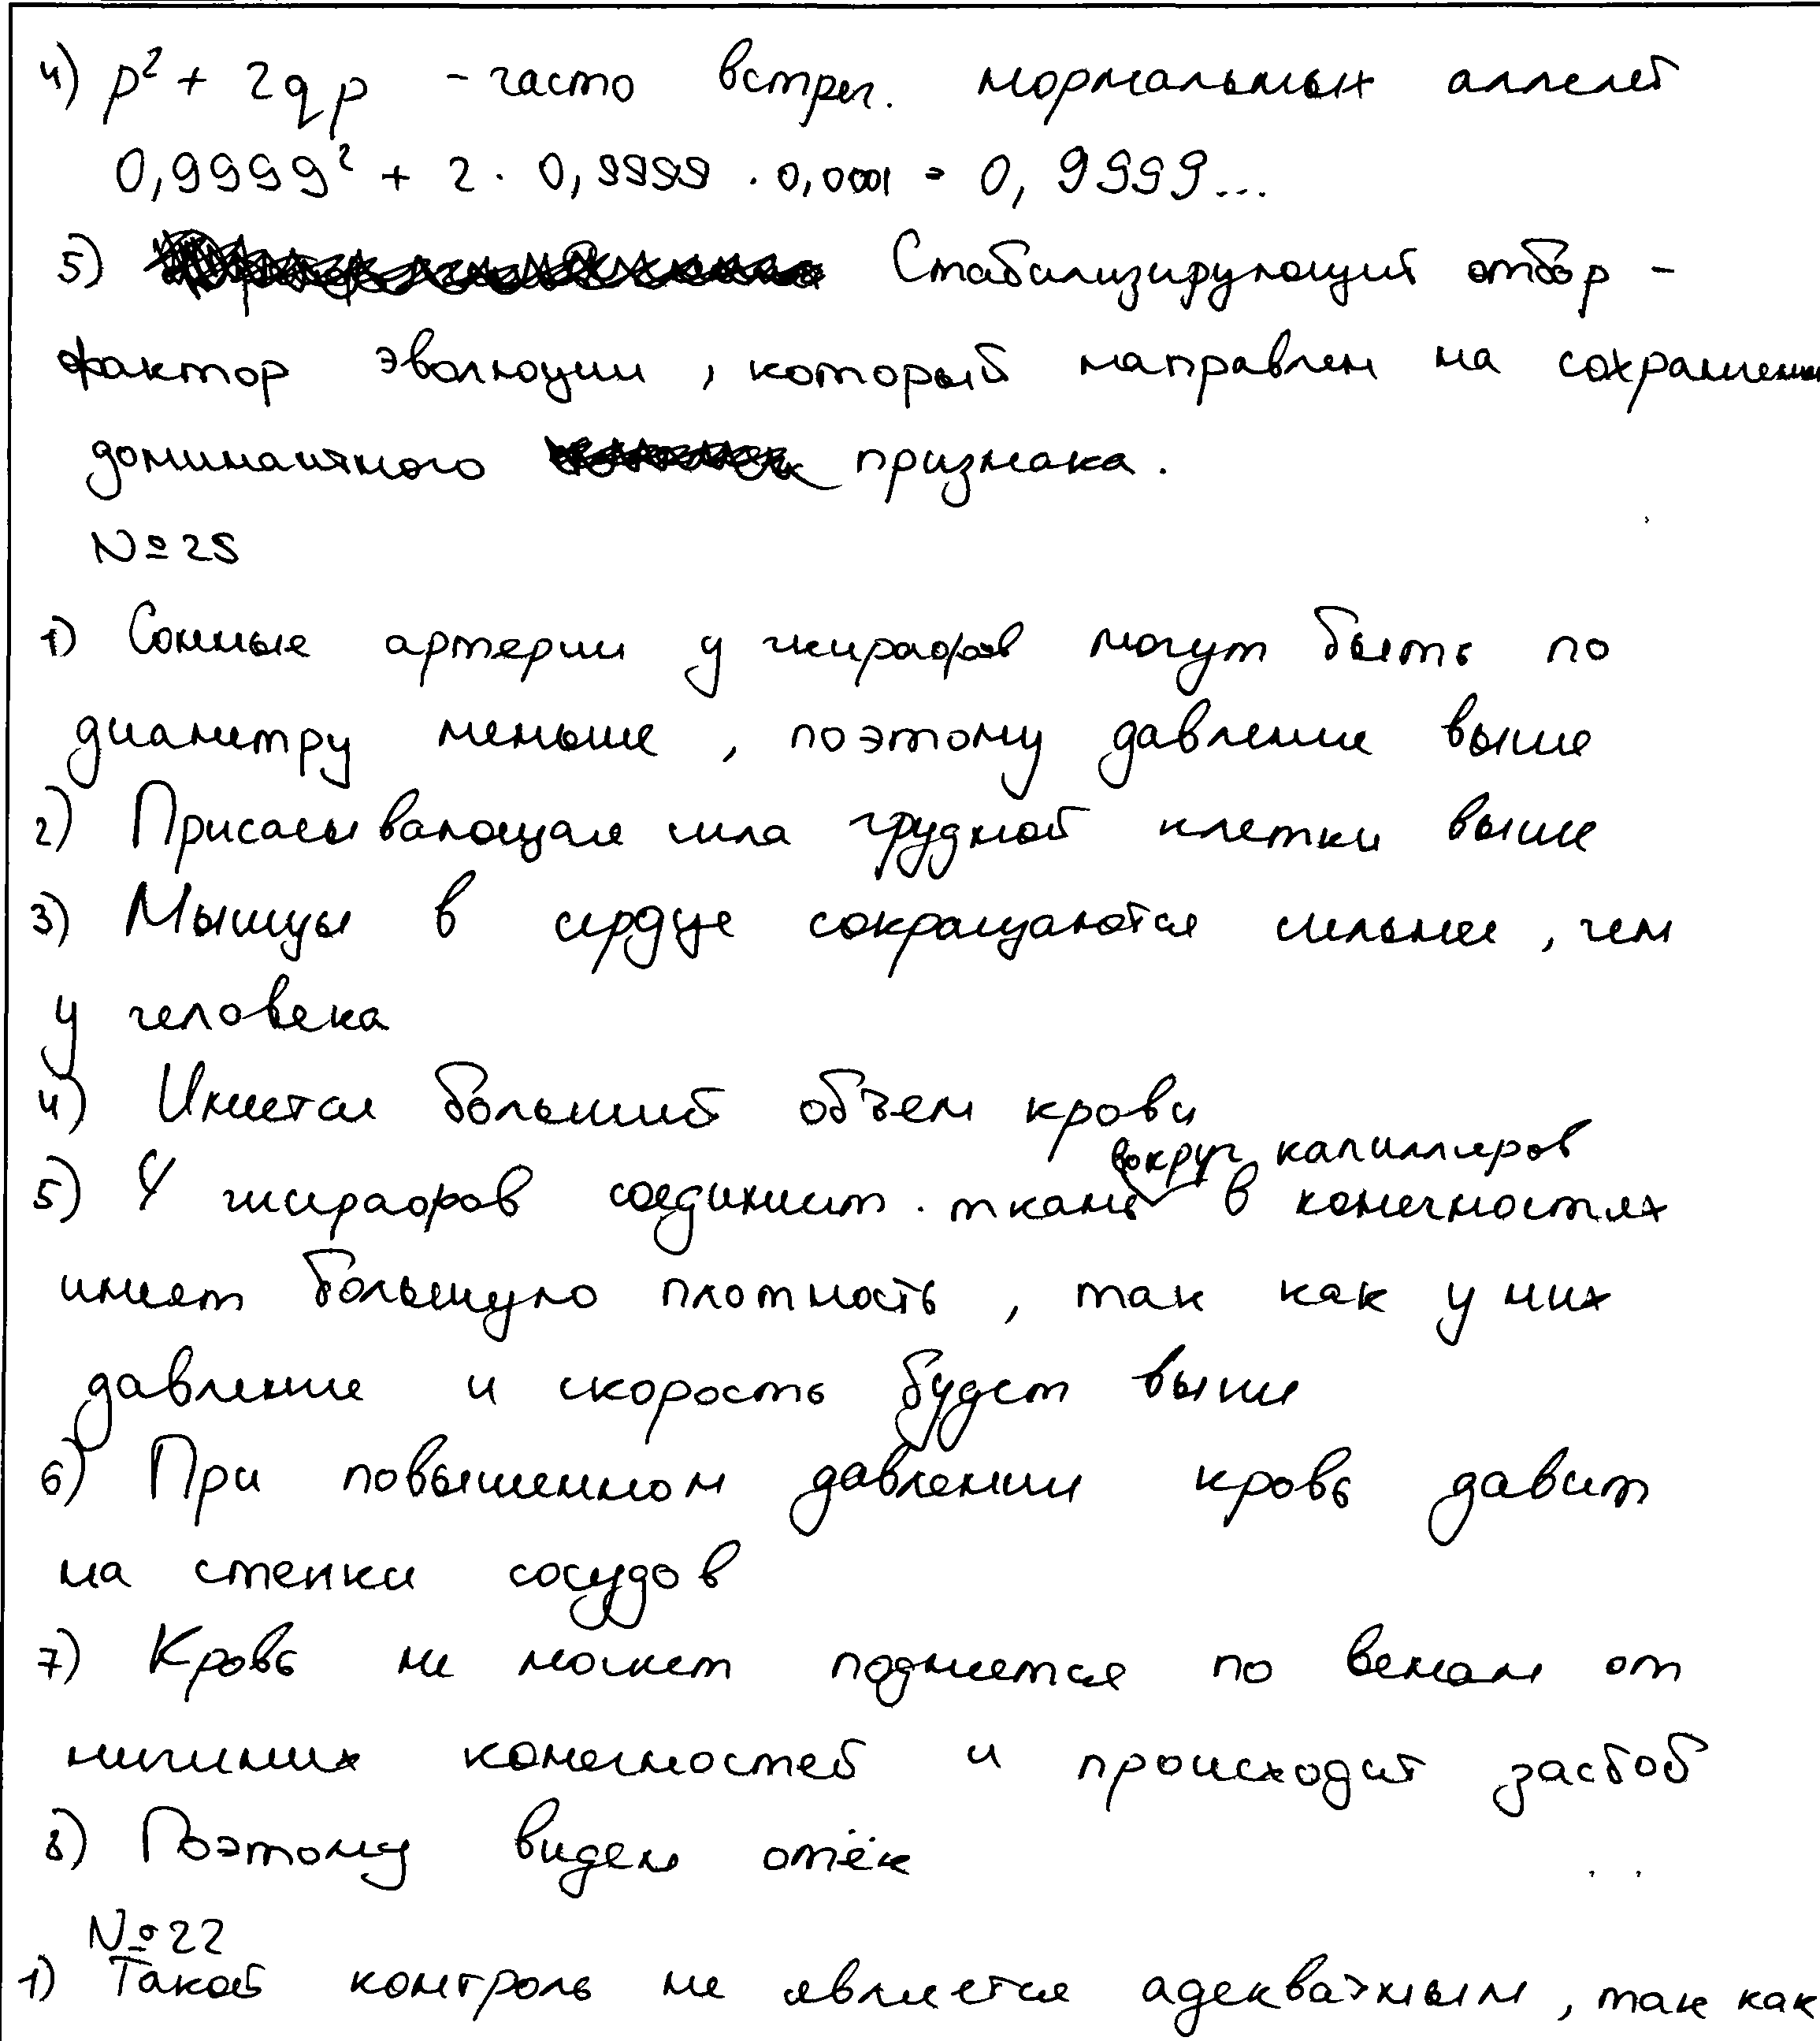 4) p² + 2qp - часто встреч. нормальных аллелей
0,9999² + 2 · 0,9999 · 0,0001 = 0, 9999...
5) Стабилизирующий отбор -
фактор эволюции, который направлен на сохранение
доминантного признака.
№25
1) Сонные артерии у жирафов могут быть по
диаметру меньше, поэтому давление выше
2) Присасывающая сила грудной клетки выше
3) Мышцы в сердце сокращаются сильнее, чем
у человека
4) Имеется больший объем крови
вокруг капилляров
5) У жирафов соединит. ткань в конечностях
имеет большую плотность, так как у них
давление и скорость будет выше
6) При повышенном давлении кровь давит
на стенки сосудов
7) Кровь не может поднятся по венам от
нижних конечностей и происходит застой
8) Поэтому виден отёк
№22
1) Такой контроль не является адекватным, так как